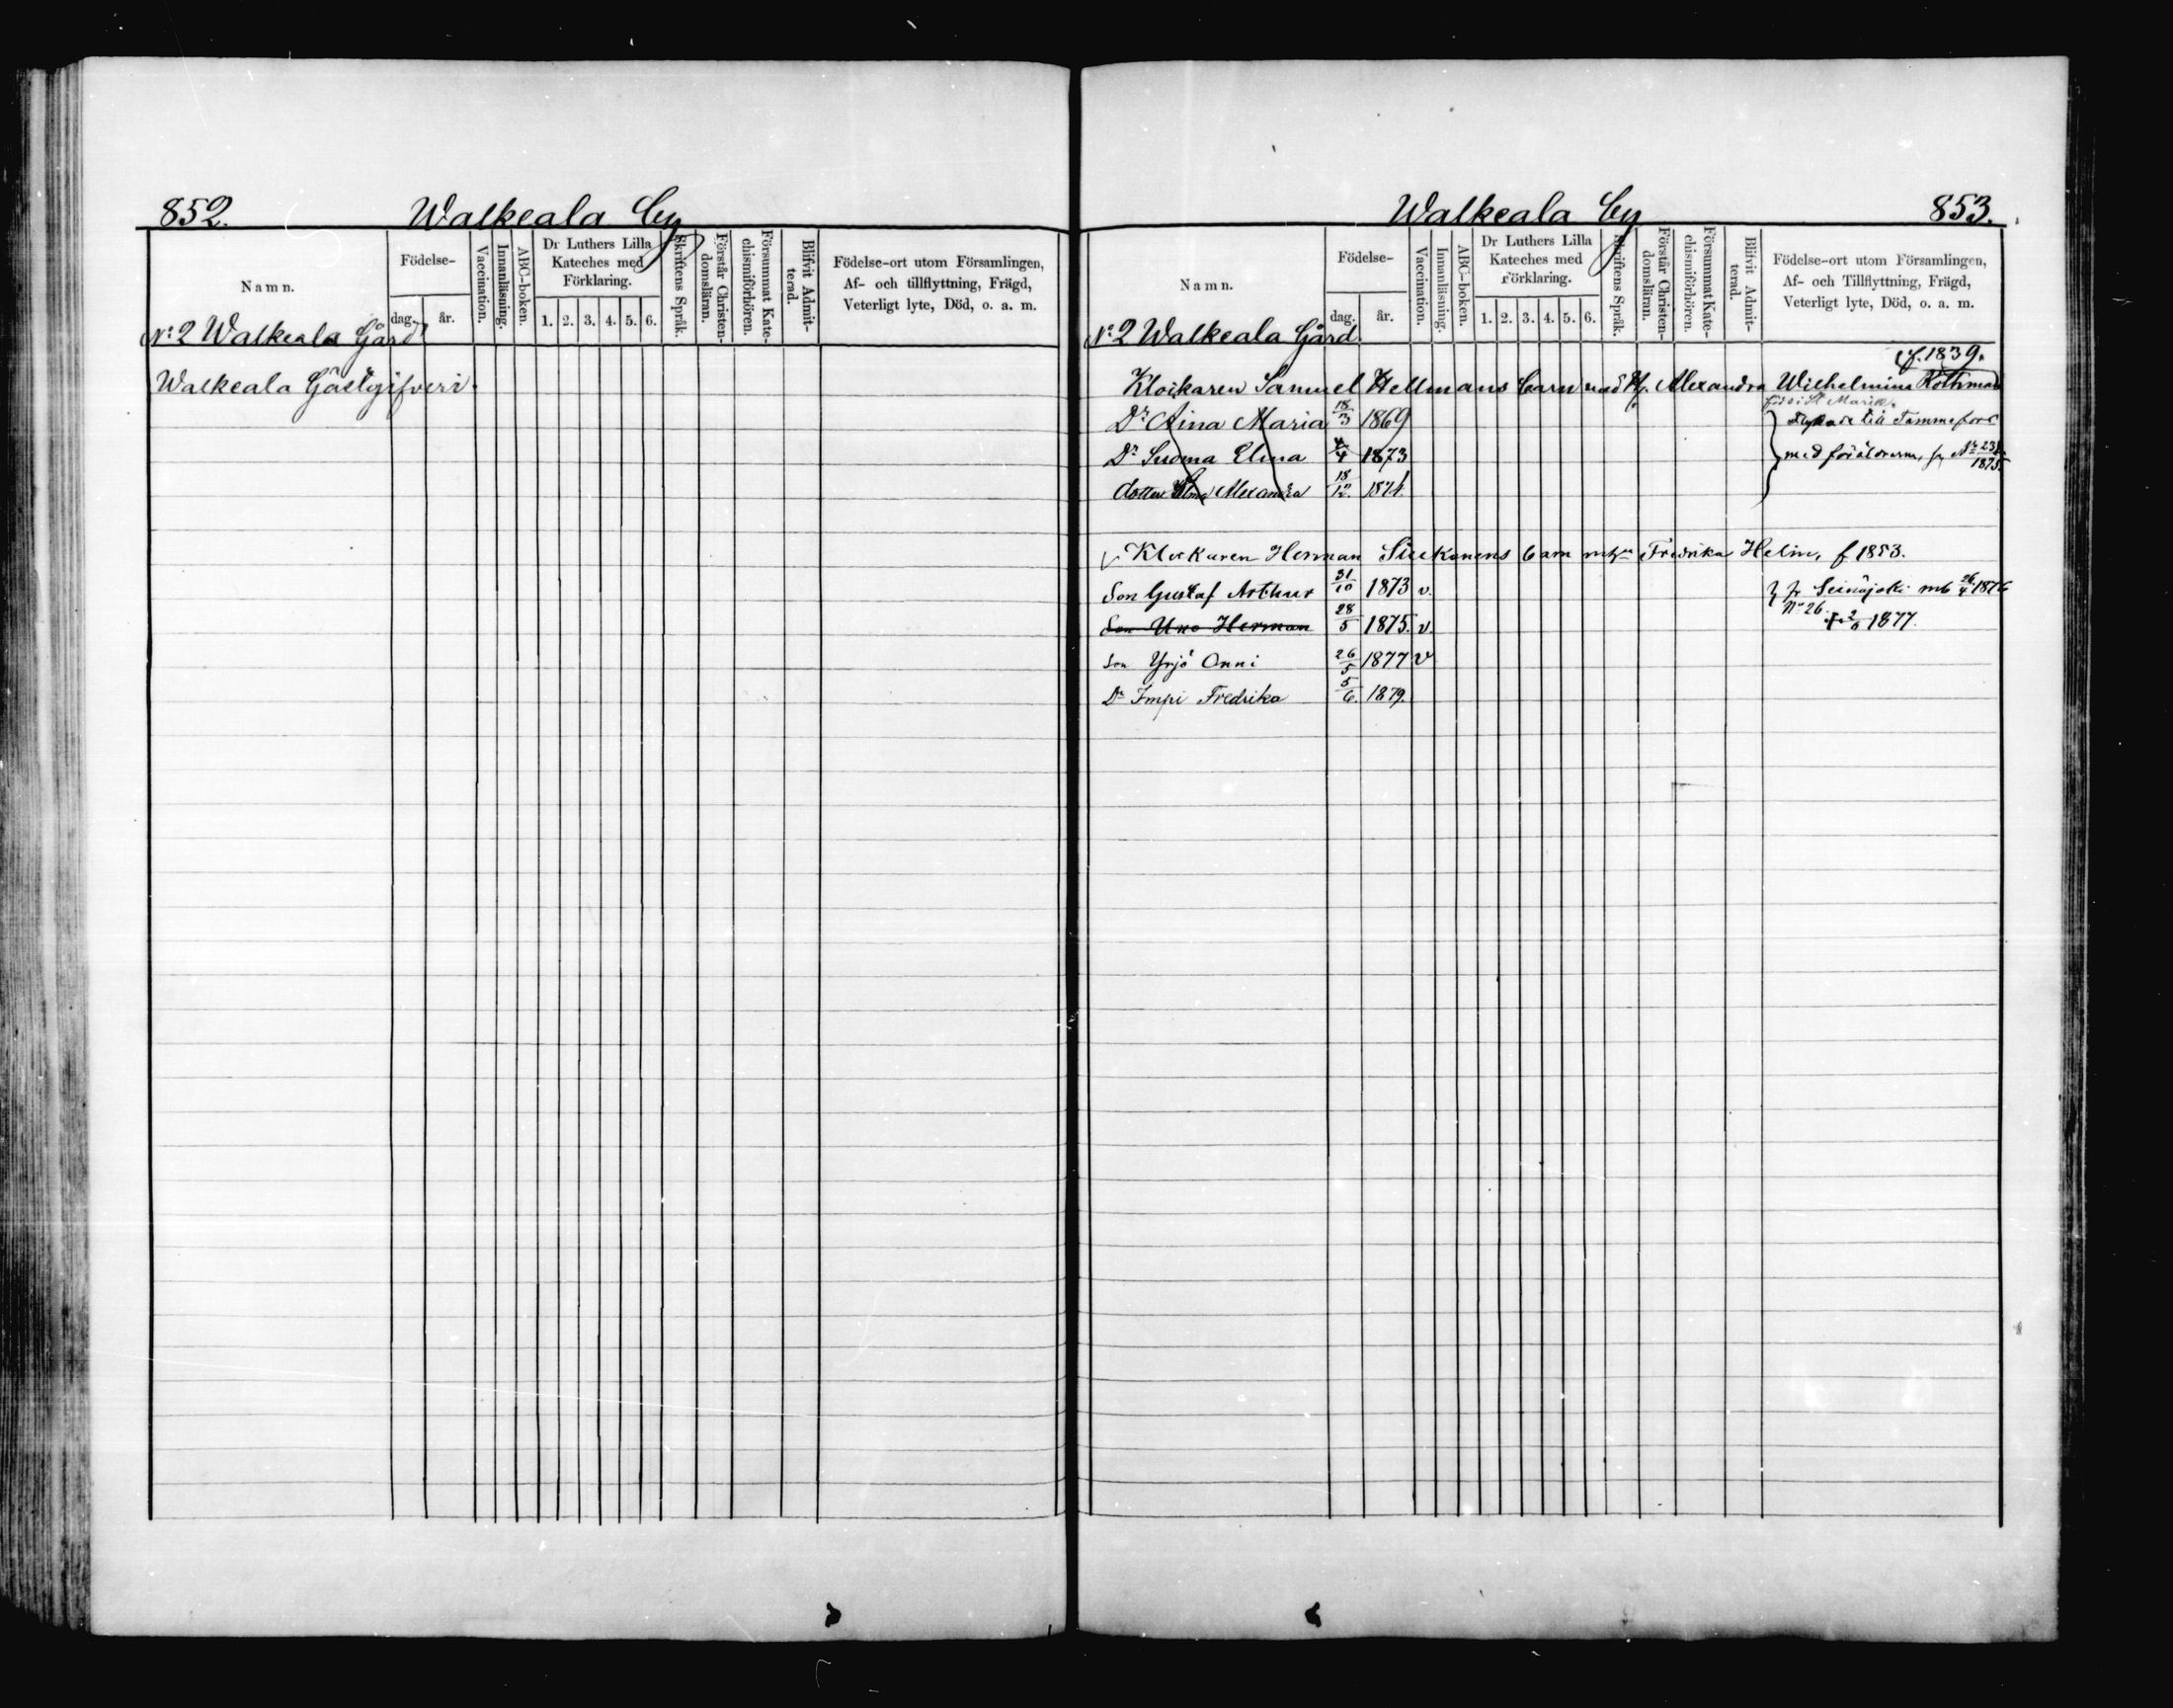 852.
Walkeala by
Namn.
Födelse-
dag.
år.
Vaccination.
Innanläsning.
ABC-boken.
Dr Luthers Lilla
Kateches med
Förklaring.
1. 2. 3. 4. 5. 6.
Skriftens Språk.
Förstår Christen-
domsläran.
Försummat Kate-
chismiförhören.
Blifvit Admit-
terad.
Födelse-ort utom Församlingen,
Af- och tillflyttning, Frägd,
Veterligt lyte, Död, o. a. m.
No 2 Walkeala Gård
Walkeala Gästgifveri.
Walkeala by
853.
Namn.
Födelse-
dag.
år.
Vaccination.
Innanläsning.
ABC-boken.
Dr Luthers Lilla
Kateches med
Förklaring.
1. 2. 3. 4. 5. 6.
Skriftens Språk.
Förstår Christen-
domsläran.
Försummat Kate-
chismiförhören.
Blifvit Admit-
terad.
Födelse-ort utom Församlingen,
Af- och Tillflyttning, Frägd,
Veterligt lyte, Död, o. a. m.
No 2 Walkeala Gård
f. 1839.
Klockaren Samuel Hellmans barn med H. Alexandra Wilhelmina Rothman
född i St Marie
Dr Aina Maria 18/3 1869 till Tammefors
Dr Suoma Elina 4/4 1873 med föräldrarne, fr No 23 1875
dotter Alma Alexandra 18/12 1874.
Klockaren Herman Siukonens barn m h Fredrika Helin, f 1853.
Son Gustaf Arthur 31/10 1873 v. fr Seinäjoki mb 26/4 1876
No 26
Son Uno Herman 28/5 1875. v. † 2/6 1877.
Son Yrjö Onni 26/5 1877 v
Dr Impi Fredrika 5/6. 1879.